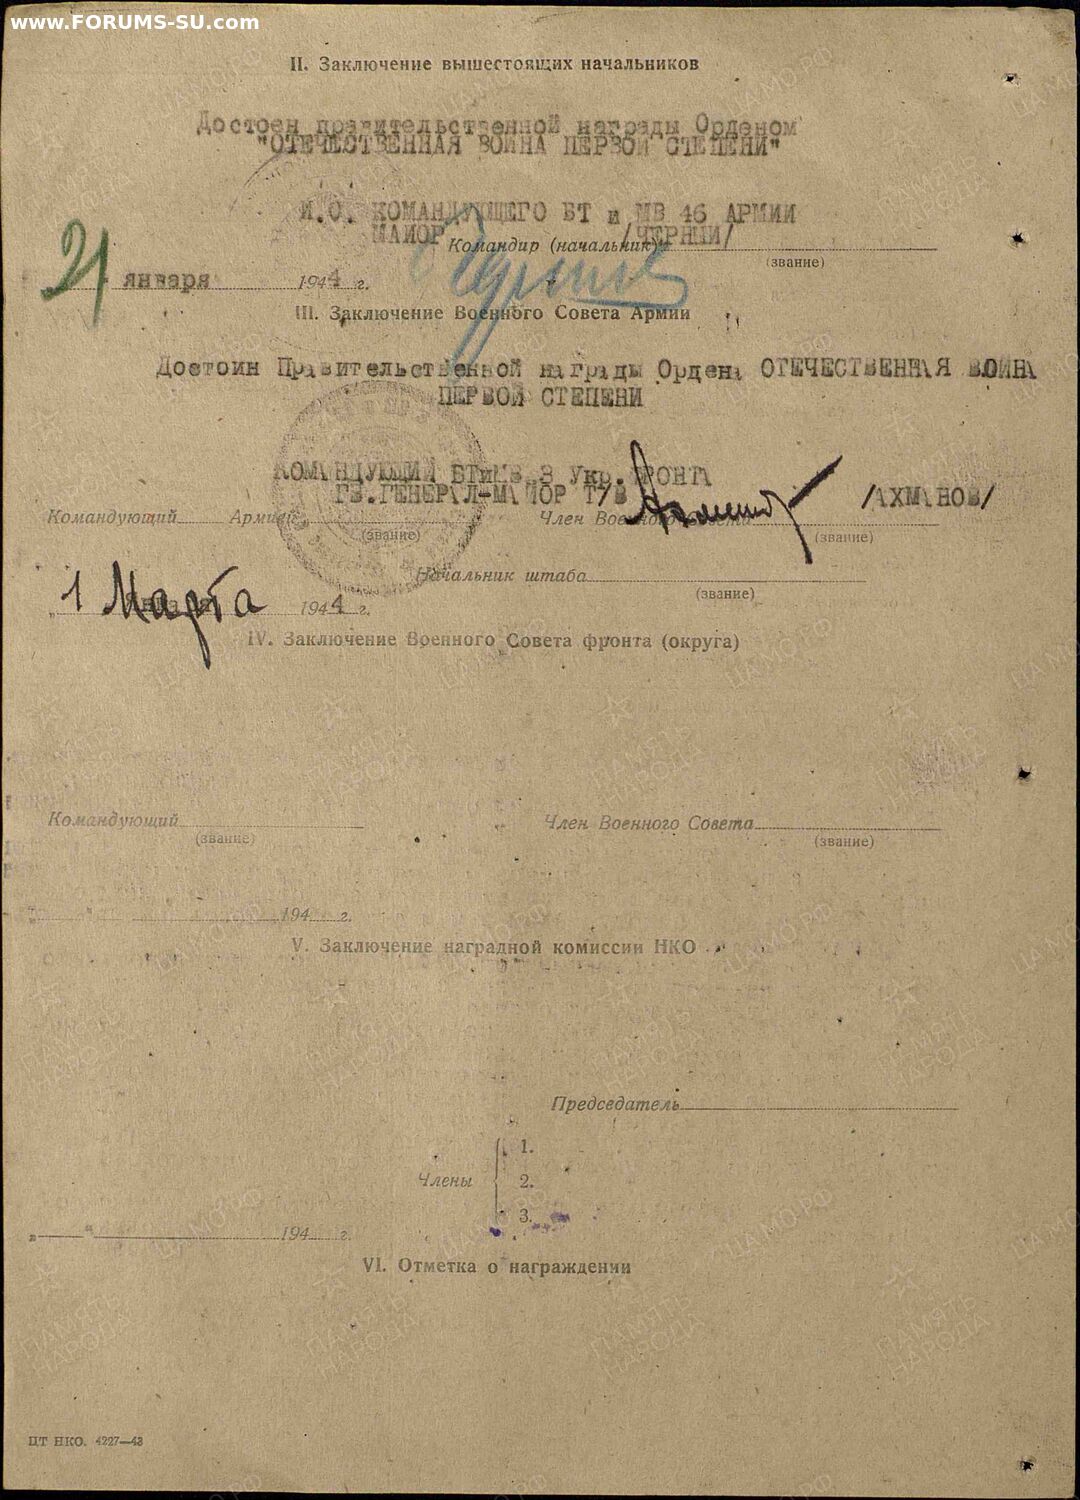 www.FORUMS-SU.com
II. Заключение вышестоящих начальников
Достоен правительственной награды Орденом
"ОТЕЧЕСТВЕННАЯ ВОИНА ПЕРВОЙ СТЕПЕНИ"
И.О. КОМАНДУЮЩЕГО БТ и МВ 46 АРМИИ
МАИОР /ЧЕРНЫЙ/
Командир (начальник)
(звание)
21 января 1944 г.
III. Заключение Военного Совета Армии
Достоин Правительственной награды Ордена ОТЕЧЕСТВЕННАЯ ВОИНА
ПЕРВОЙ СТЕПЕНИ
КОМАНДУЮЩИЙ БТиМВ 3 Укр.ФРОНТА
ГВ.ГЕНЕРАЛ-МАЙОР Т/В /АХМАНОВ/
Командующий Армией Член Военного Совета
(звание) (звание)
Начальник штаба
(звание)
1 Марта 1944 г.
IV. Заключение Военного Совета фронта (округа)
Командующий Член Военного Совета
(звание) (звание)
" " 194 г.
V. Заключение наградной комиссии НКО
Председатель
1.
Члены 2.
3.
" " 194 г.
VI. Отметка о награждении
ЦТ НКО. 4227—43
ПАМЯТЬ НАРОДА
ЦАМО.РФ